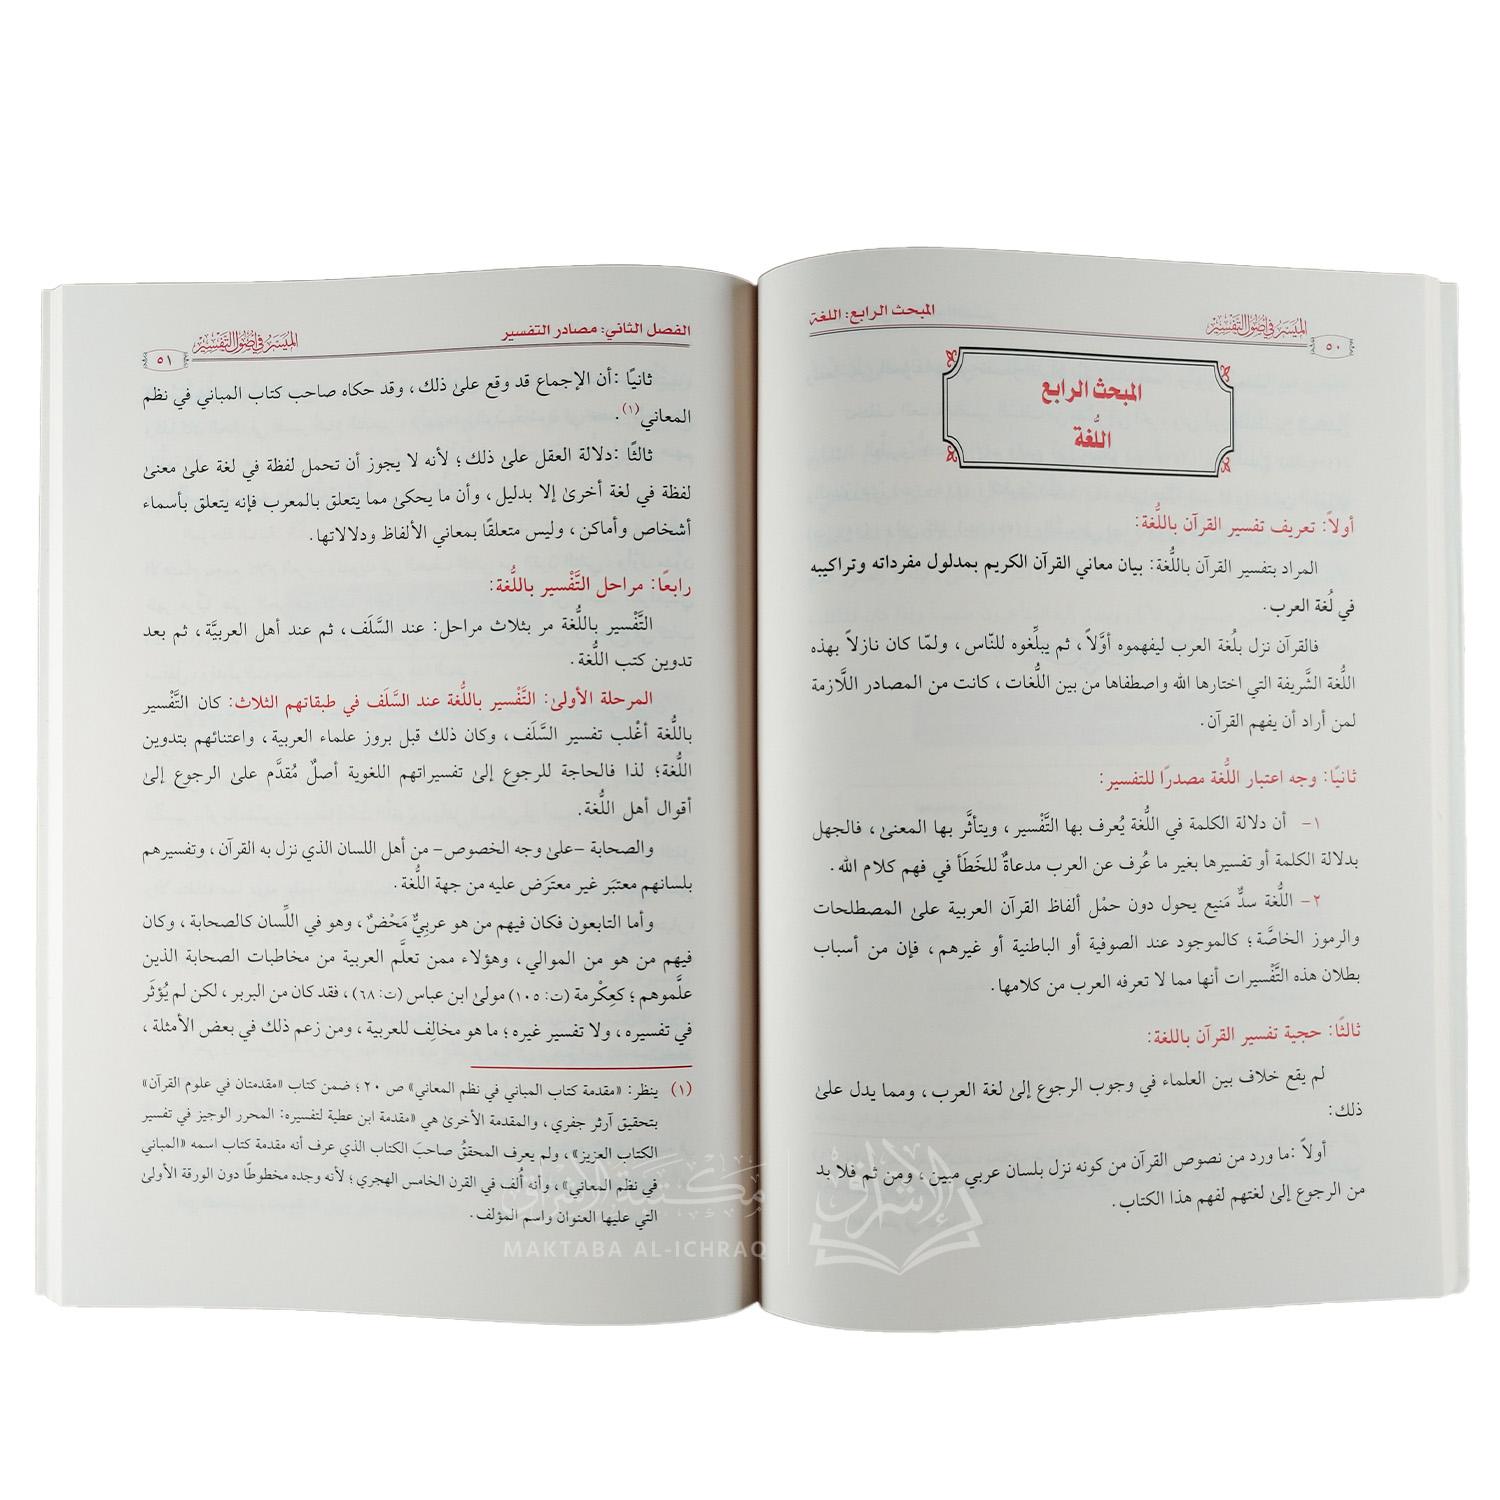 الميسر في أصول التفسير
المبحث الرابع: اللغة
٥٠
المبحث الرابع
اللُّغة
أولاً: تعريف تفسير القرآن باللُّغة:
المراد بتفسير القرآن باللُّغة: بيان معاني القرآن الكريم بمدلول مفرداته وتراكيبه
في لُغة العرب.
فالقرآن نزل بلُغة العرب ليفهموه أوَّلاً، ثم يبلِّغوه للنّاس، ولمّا كان نازلاً بهذه
اللُّغة الشَّريفة التي اختارها الله واصطفاها من بين اللُّغات، كانت من المصادر اللَّازمة
لمن أراد أن يفهم القرآن.
ثانيًا: وجه اعتبار اللُّغة مصدرًا للتفسير:
١- أن دلالة الكلمة في اللُّغة يُعرف بها التَّفْسير، ويتأثَّر بها المعنىٰ، فالجهل
بدلالة الكلمة أو تفسيرها بغير ما عُرف عن العرب مدعاةٌ للخَطَأ في فهم كلام الله.
٢- اللُّغة سدٌّ مَنيع يحول دون حمْل ألفاظ القرآن العربية علىٰ المصطلحات
والرموز الخاصَّة؛ كالموجود عند الصوفية أو الباطنية أو غيرهم، فإن من أسباب
بطلان هذه التَّفْسيرات أنها مما لا تعرفه العرب من كلامها.
ثالثًا: حجية تفسير القرآن باللغة:
لم يقع خلاف بين العلماء في وجوب الرجوع إلىٰ لغة العرب، ومما يدل علىٰ
ذلك:
أولاً: ما ورد من نصوص القرآن من كونه نزل بلسان عربي مبين، ومن ثم فلا بد
من الرجوع إلىٰ لغتهم لفهم هذا الكتاب.
الفصل الثاني: مصادر التفسير
الميسر في أصول التفسير
٥١
ثانيًا: أن الإجماع قد وقع علىٰ ذلك، وقد حكاه صاحب كتاب المباني في نظم
المعاني(١).
ثالثًا: دلالة العقل علىٰ ذلك؛ لأنه لا يجوز أن تحمل لفظة في لغة علىٰ معنىٰ
لفظة في لغة أخرىٰ إلا بدليل، وأن ما يحكىٰ مما يتعلق بالمعرب فإنه يتعلق بأسماء
أشخاص وأماكن، وليس متعلقًا بمعاني الألفاظ ودلالاتها.
رابعًا: مراحل التَّفْسير باللُّغة:
التَّفْسير باللُّغة مر بثلاث مراحل: عند السَّلَف، ثم عند أهل العربيَّة، ثم بعد
تدوين كتب اللُّغة.
المرحلة الأولىٰ: التَّفْسير باللُّغة عند السَّلَف في طبقاتهم الثلاث: كان التَّفْسير
باللُّغة أغْلب تفسير السَّلَف، وكان ذلك قبل بروز علماء العربية، واعتنائهم بتدوين
اللُّغة؛ لذا فالحاجة للرجوع إلىٰ تفسيراتهم اللغوية أصلٌ مُقدَّم علىٰ الرجوع إلىٰ
أقوال أهل اللُّغة.
والصحابة -علىٰ وجه الخصوص- من أهل اللسان الذي نزل به القرآن، وتفسيرهم
بلسانهم معتبَر غير معترَض عليه من جهة اللُّغة.
وأما التابعون فكان فيهم من هو عربيٌّ مَحْضٌ، وهو في اللِّسان كالصحابة، وكان
فيهم من هو من الموالي، وهؤلاء ممن تعلَّم العربية من مخاطبات الصحابة الذين
علَّموهم؛ كعِكْرمة (ت: ١٠٥) مولىٰ ابن عباس (ت: ٦٨)، فقد كان من البربر، لكن لم يُؤثَر
في تفسيره، ولا تفسير غيره؛ ما هو مخالِف للعربية، ومن زعم ذلك في بعض الأمثلة،
(١) ينظر: «مقدمة كتاب المباني في نظم المعاني» ص ٢٠؛ ضمن كتاب «مقدمتان في علوم القرآن»
بتحقيق آرثر جفري، والمقدمة الأخرىٰ هي «مقدمة ابن عطية لتفسيره: المحرر الوجيز في تفسير
الكتاب العزيز»، ولم يعرف المحققُ صاحبَ الكتاب الذي عرف أنه مقدمة كتاب اسمه «المباني
في نظم المعاني»، وأنه أُلف في القرن الخامس الهجري؛ لأنه وجده مخطوطًا دون الورقة الأولىٰ
التي عليها العنوان واسم المؤلف.
مكتبة الإشراق
MAKTABA AL-ICHRAQ
الإشراق